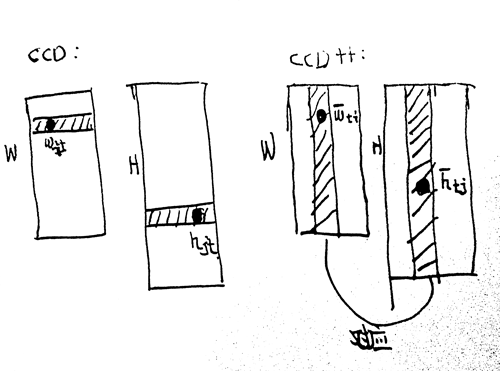 CCD:
W
w_it
H
h_jt
CCD++:
W
w̄_ti
H
h̄_tj